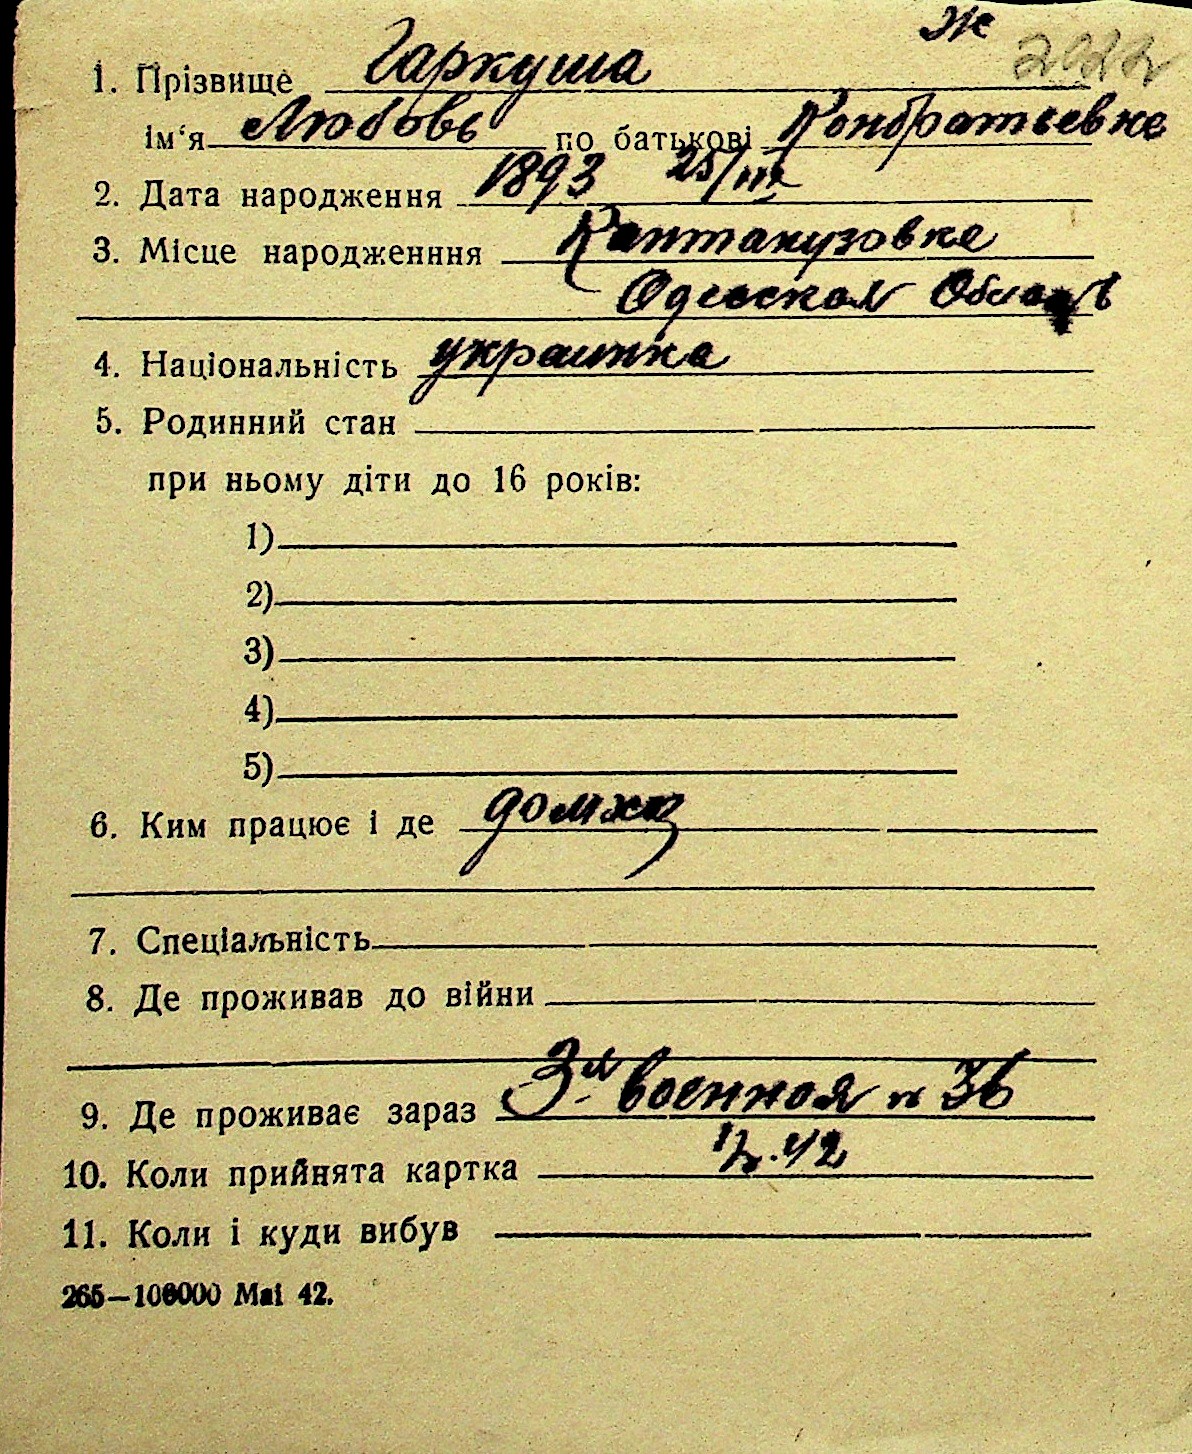 Ж
1. Прізвище Гаркуша
ім'я Любовь по батькові Кондратьевне
2. Дата народження 1893 25/III
3. Місце народженння Каптанузовке
Одесской
4. Національність украинка
5. Родинний стан
при ньому діти до 16 років:
1)
2)
3)
4)
5)
6. Ким працює і де домхоз
7. Спеціальність
8. Де проживав до війни
9. Де проживає зараз 3я военная 36
10. Коли прийнята картка
11. Коли і куди вибув
265—100000 Маі 42.